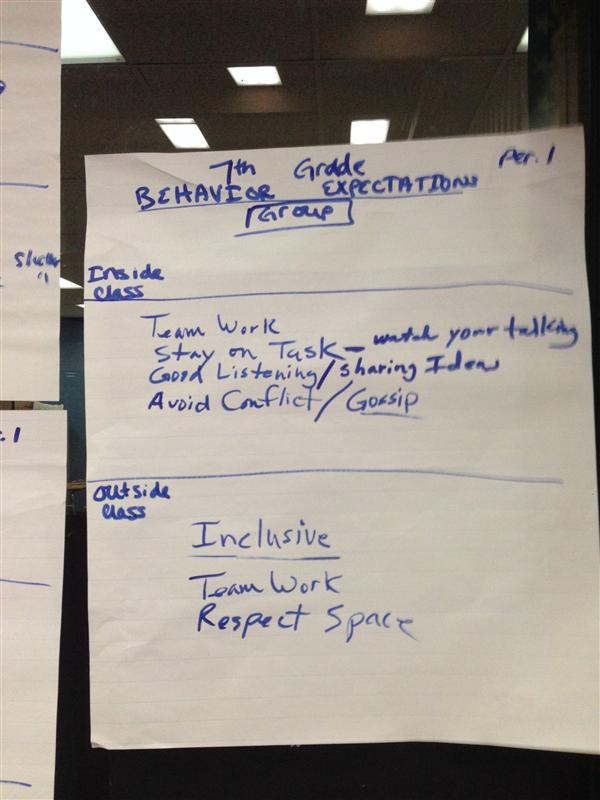 7th Grade
Per. 1
BEHAVIOR EXPECTATIONS
Group
Inside
class
Team Work
Stay on Task - watch your talking
Good Listening / sharing Ideas
Avoid Conflict / Gossip
Outside
class
Inclusive
Team Work
Respect Space